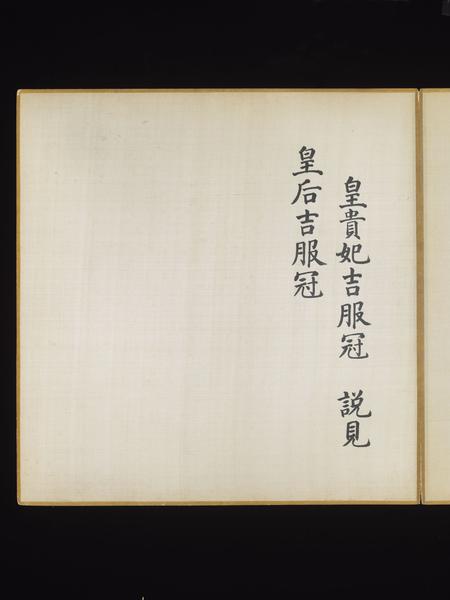 皇貴妃吉服冠 説見
皇后吉服冠